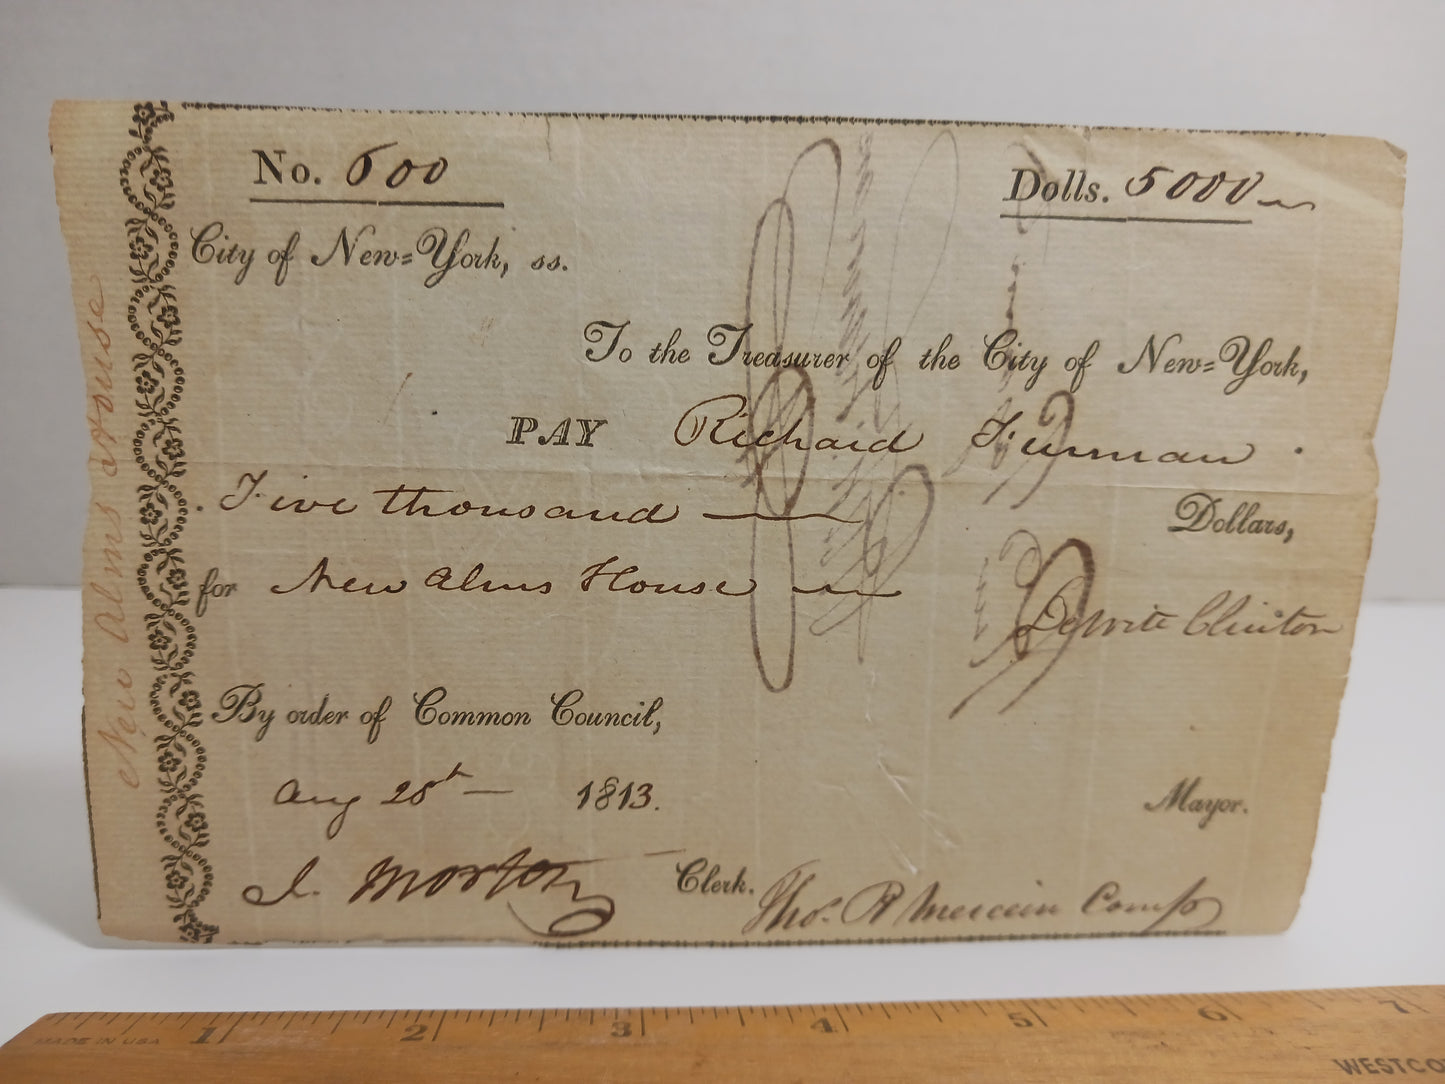 No. 600
Dolls. 5000
City of New=York, ss.
To the Treasurer of the City of New=York,
PAY Richard Furman
Five thousand Dollars,
for New Alms House
DeWitt Clinton
By order of Common Council,
Aug 28th 1813.
Mayor.
J. Morton Clerk.
Thos. R Mercein Comp
New Alms House
MADE IN USA
1 2 3 4 5 6 7
WESTCO